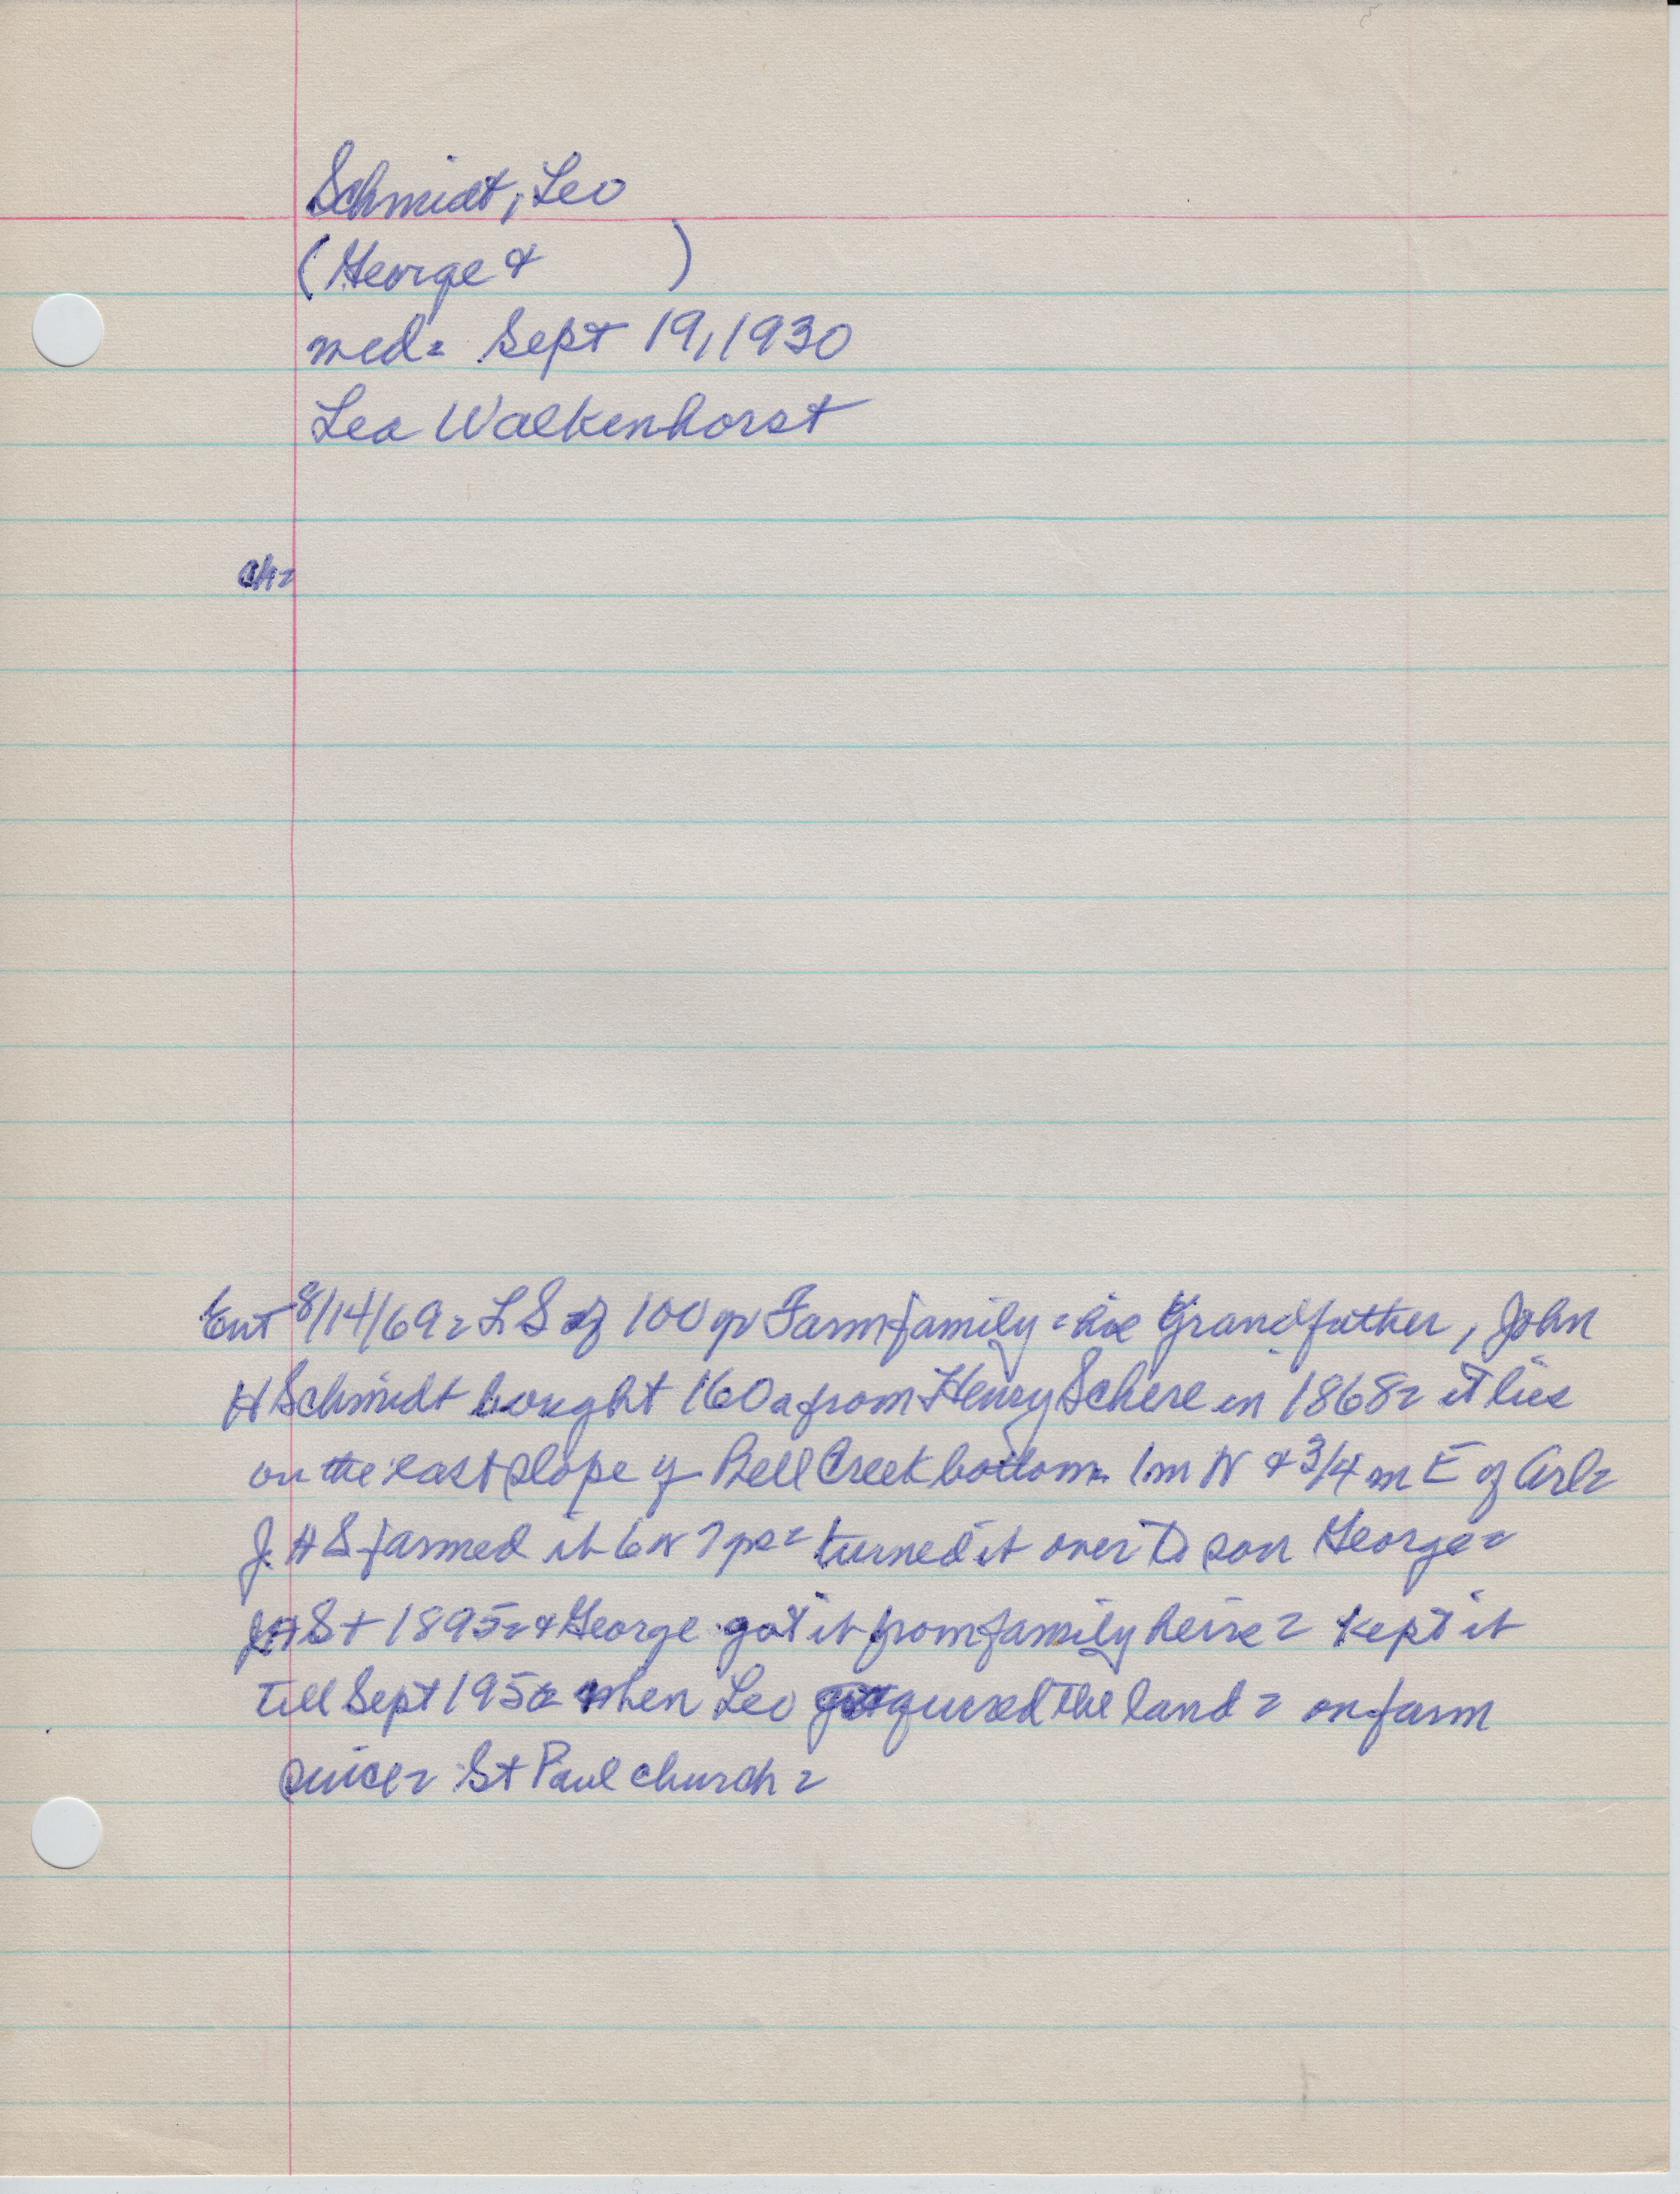 Schmidt, Leo
(George & )
med= Sept 19, 1930
Lea Walkenhorst
ch=
Ent 8/14/69= L S of 100 yr Farm family = his Grandfather, John
H Schmidt bought 160 a from Henry Schere in 1868= it lies
on the east slope of Bell Creek bottom 1 m N & 3/4 m E of Arl=
J. H S farmed it 6 or 7 yrs= turned it over to son George=
JHS + 1895= & George got it from family heirs= kept it
till Sept 195 when Leo the land= on farm
since= St Paul church=